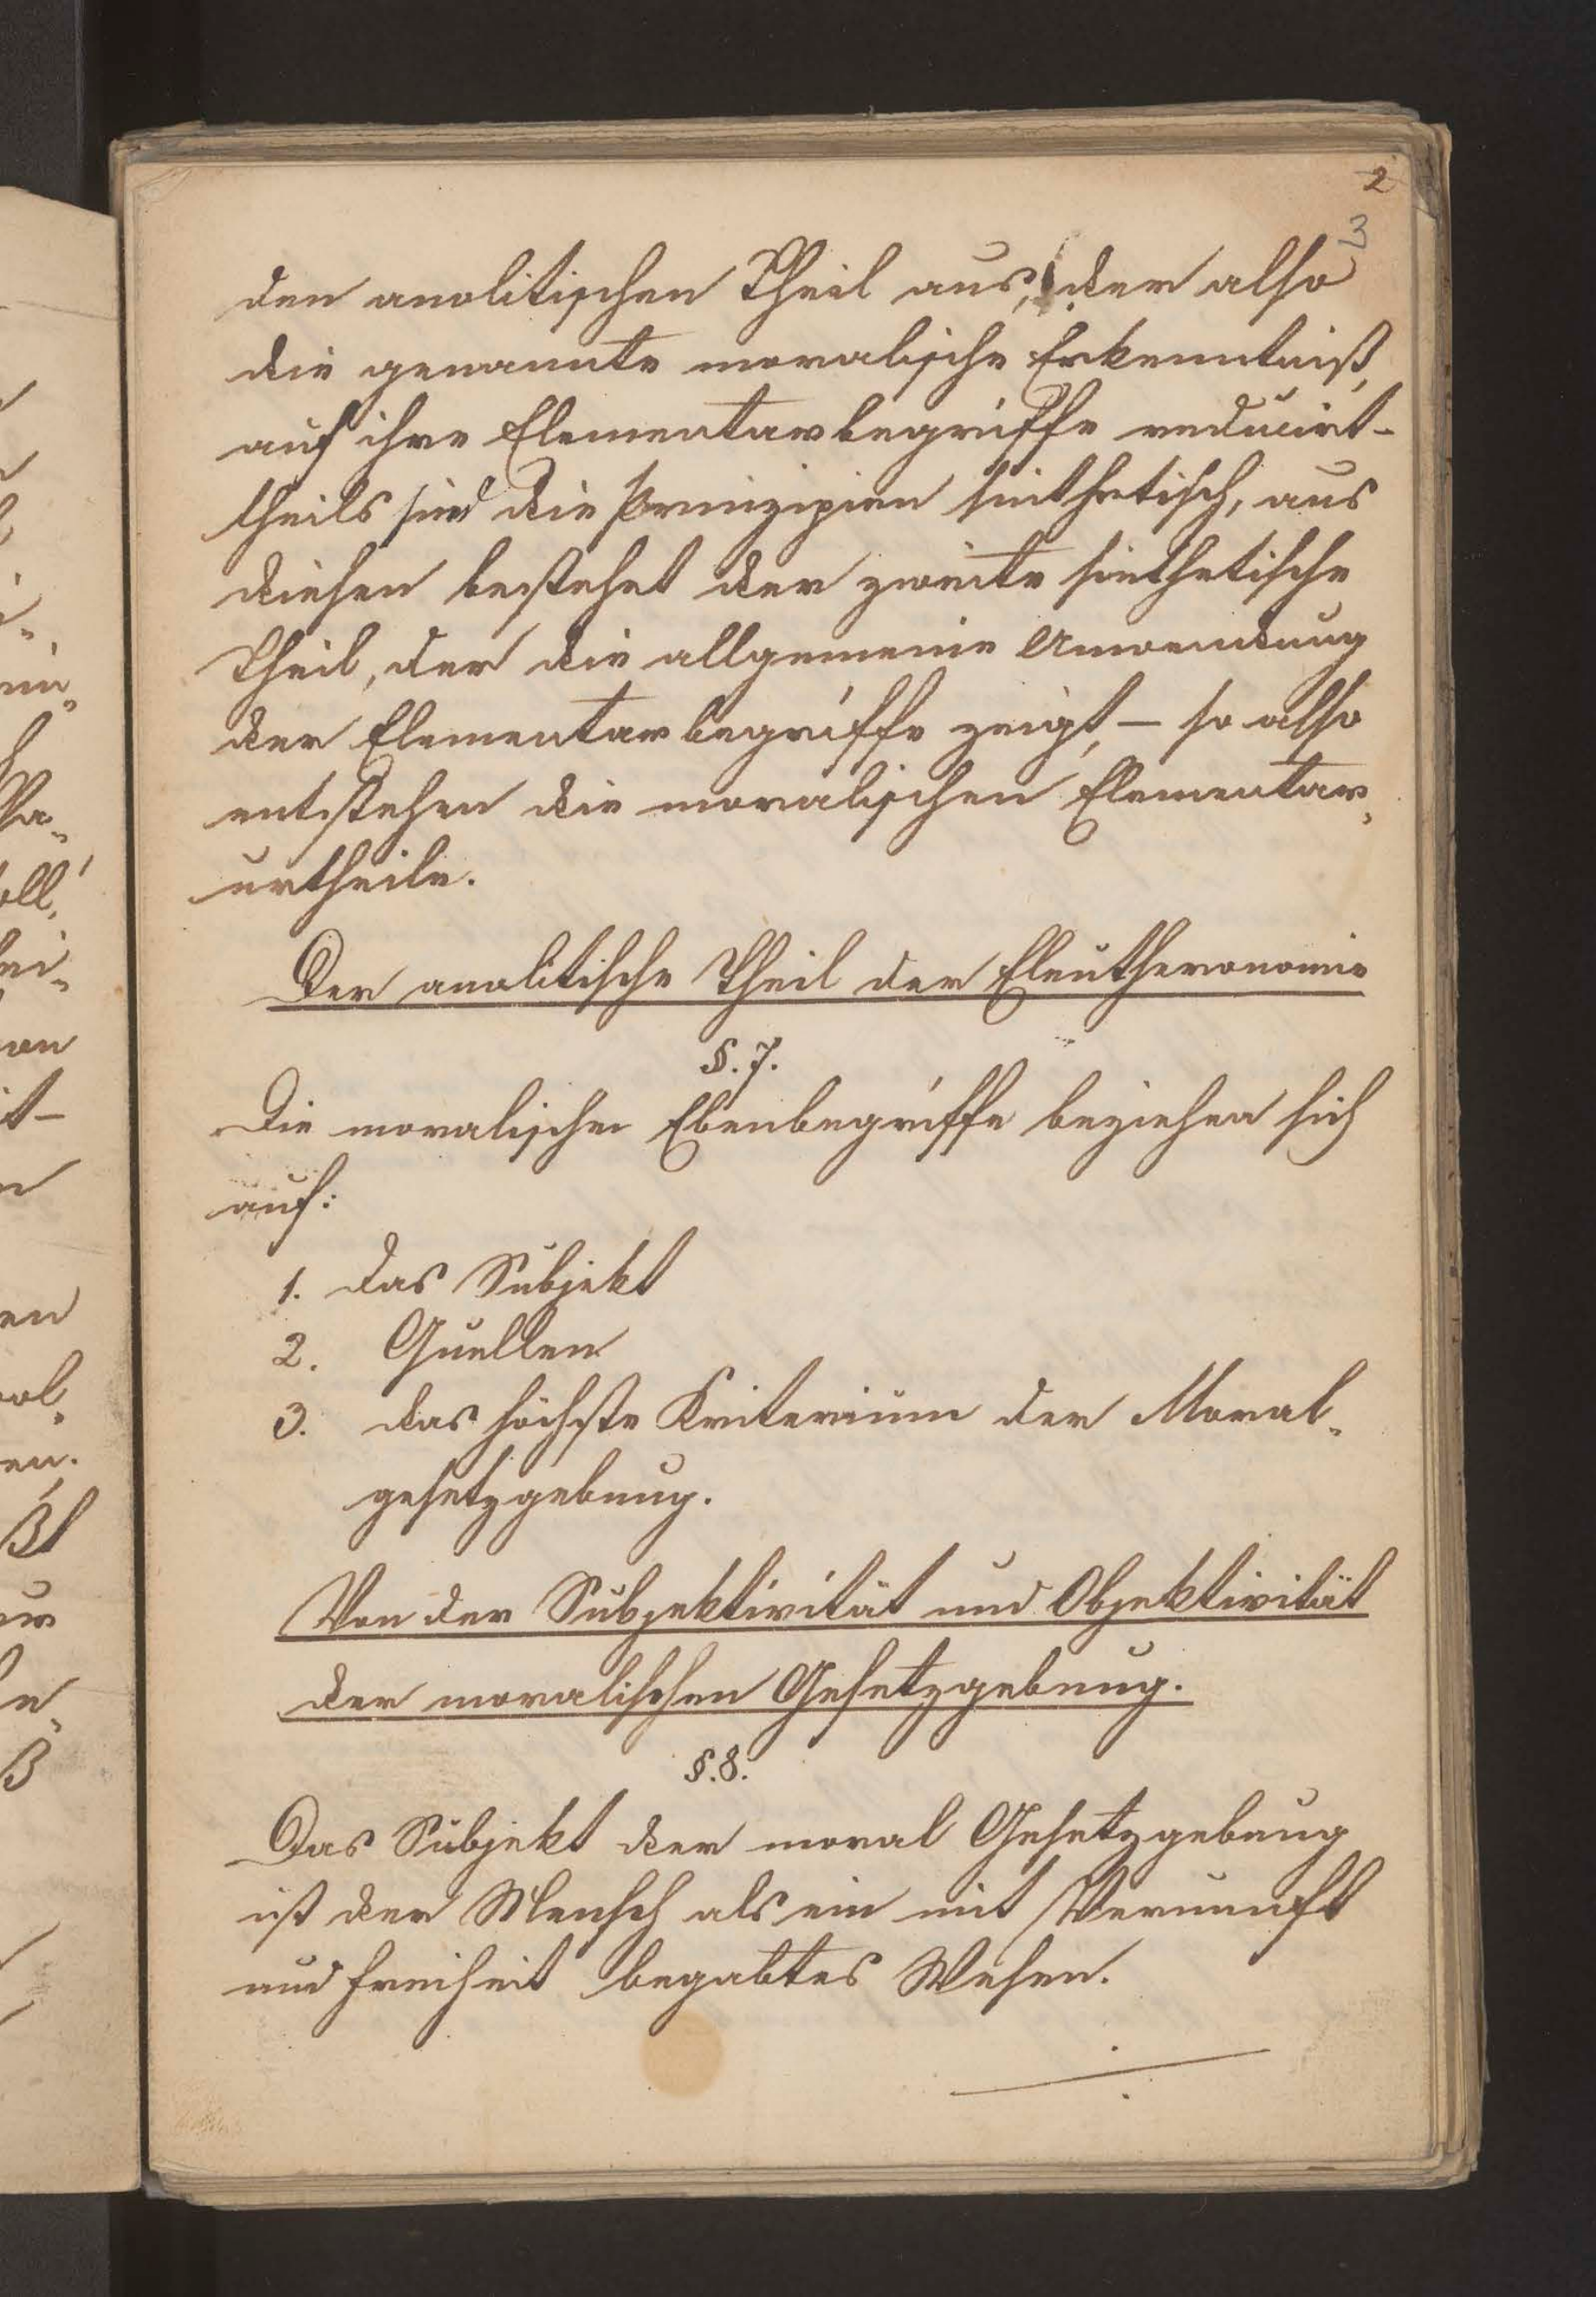 2
3
den analitischen Theil aus, der also
die genannte moralische Erkenntniß,
auf ihre Elementarbegriffe reducirt-
theils sind die Prinzipien sinthetisch, aus
diesen bestehet der zweite sinthetische
Theil, der die allgemeine Anwendung
der Elementarbegriffe zeigt, - so also
entstehen die moralischen Elementar„
urtheile.
Der analitische Theil der Eleutheronomie
§. 7.
Die moralischen Ebenbegriffe beziehen sich
auf:
1. das Subjekt
2. Quellen
3. das höchste Kriterium der Moral„
gesetzgebung.
Von der Subjektivität und Objektivität
der moralischen Gesetzgebung.
§. 8.
Das Subjekt der moral Gesetzgebung
ist der Mensch als ein mit Vernunft
und Freiheit begabtes Wesen.